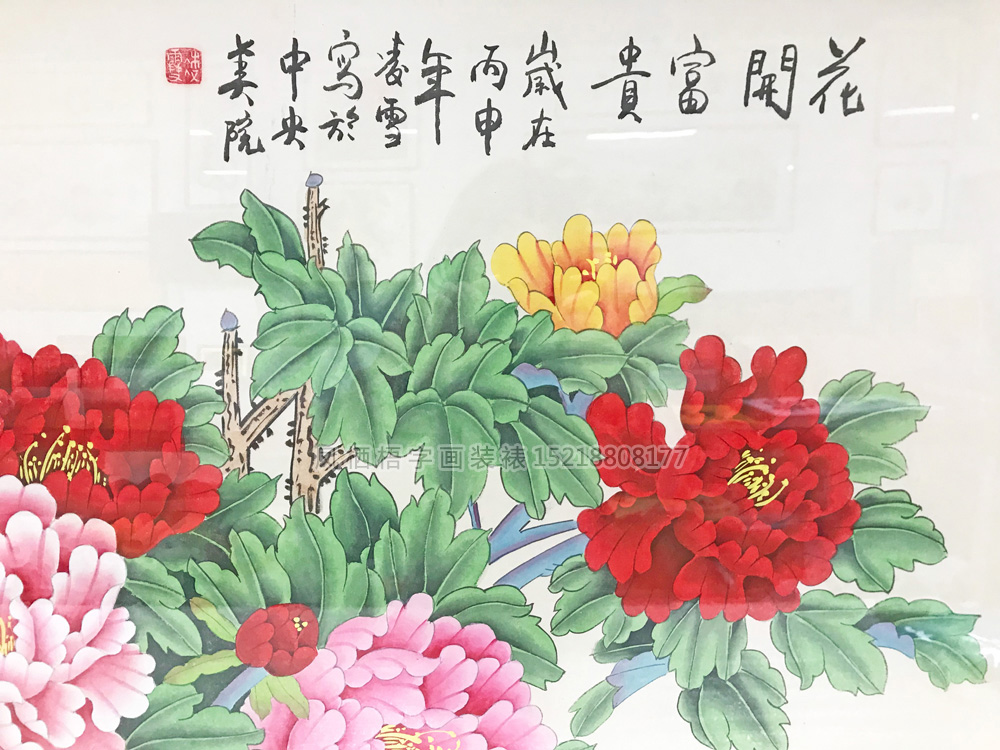 花開富貴
歲在
丙申
年
凌雪
寫於
中央
美院
凤栖梧字画装裱 15218808177